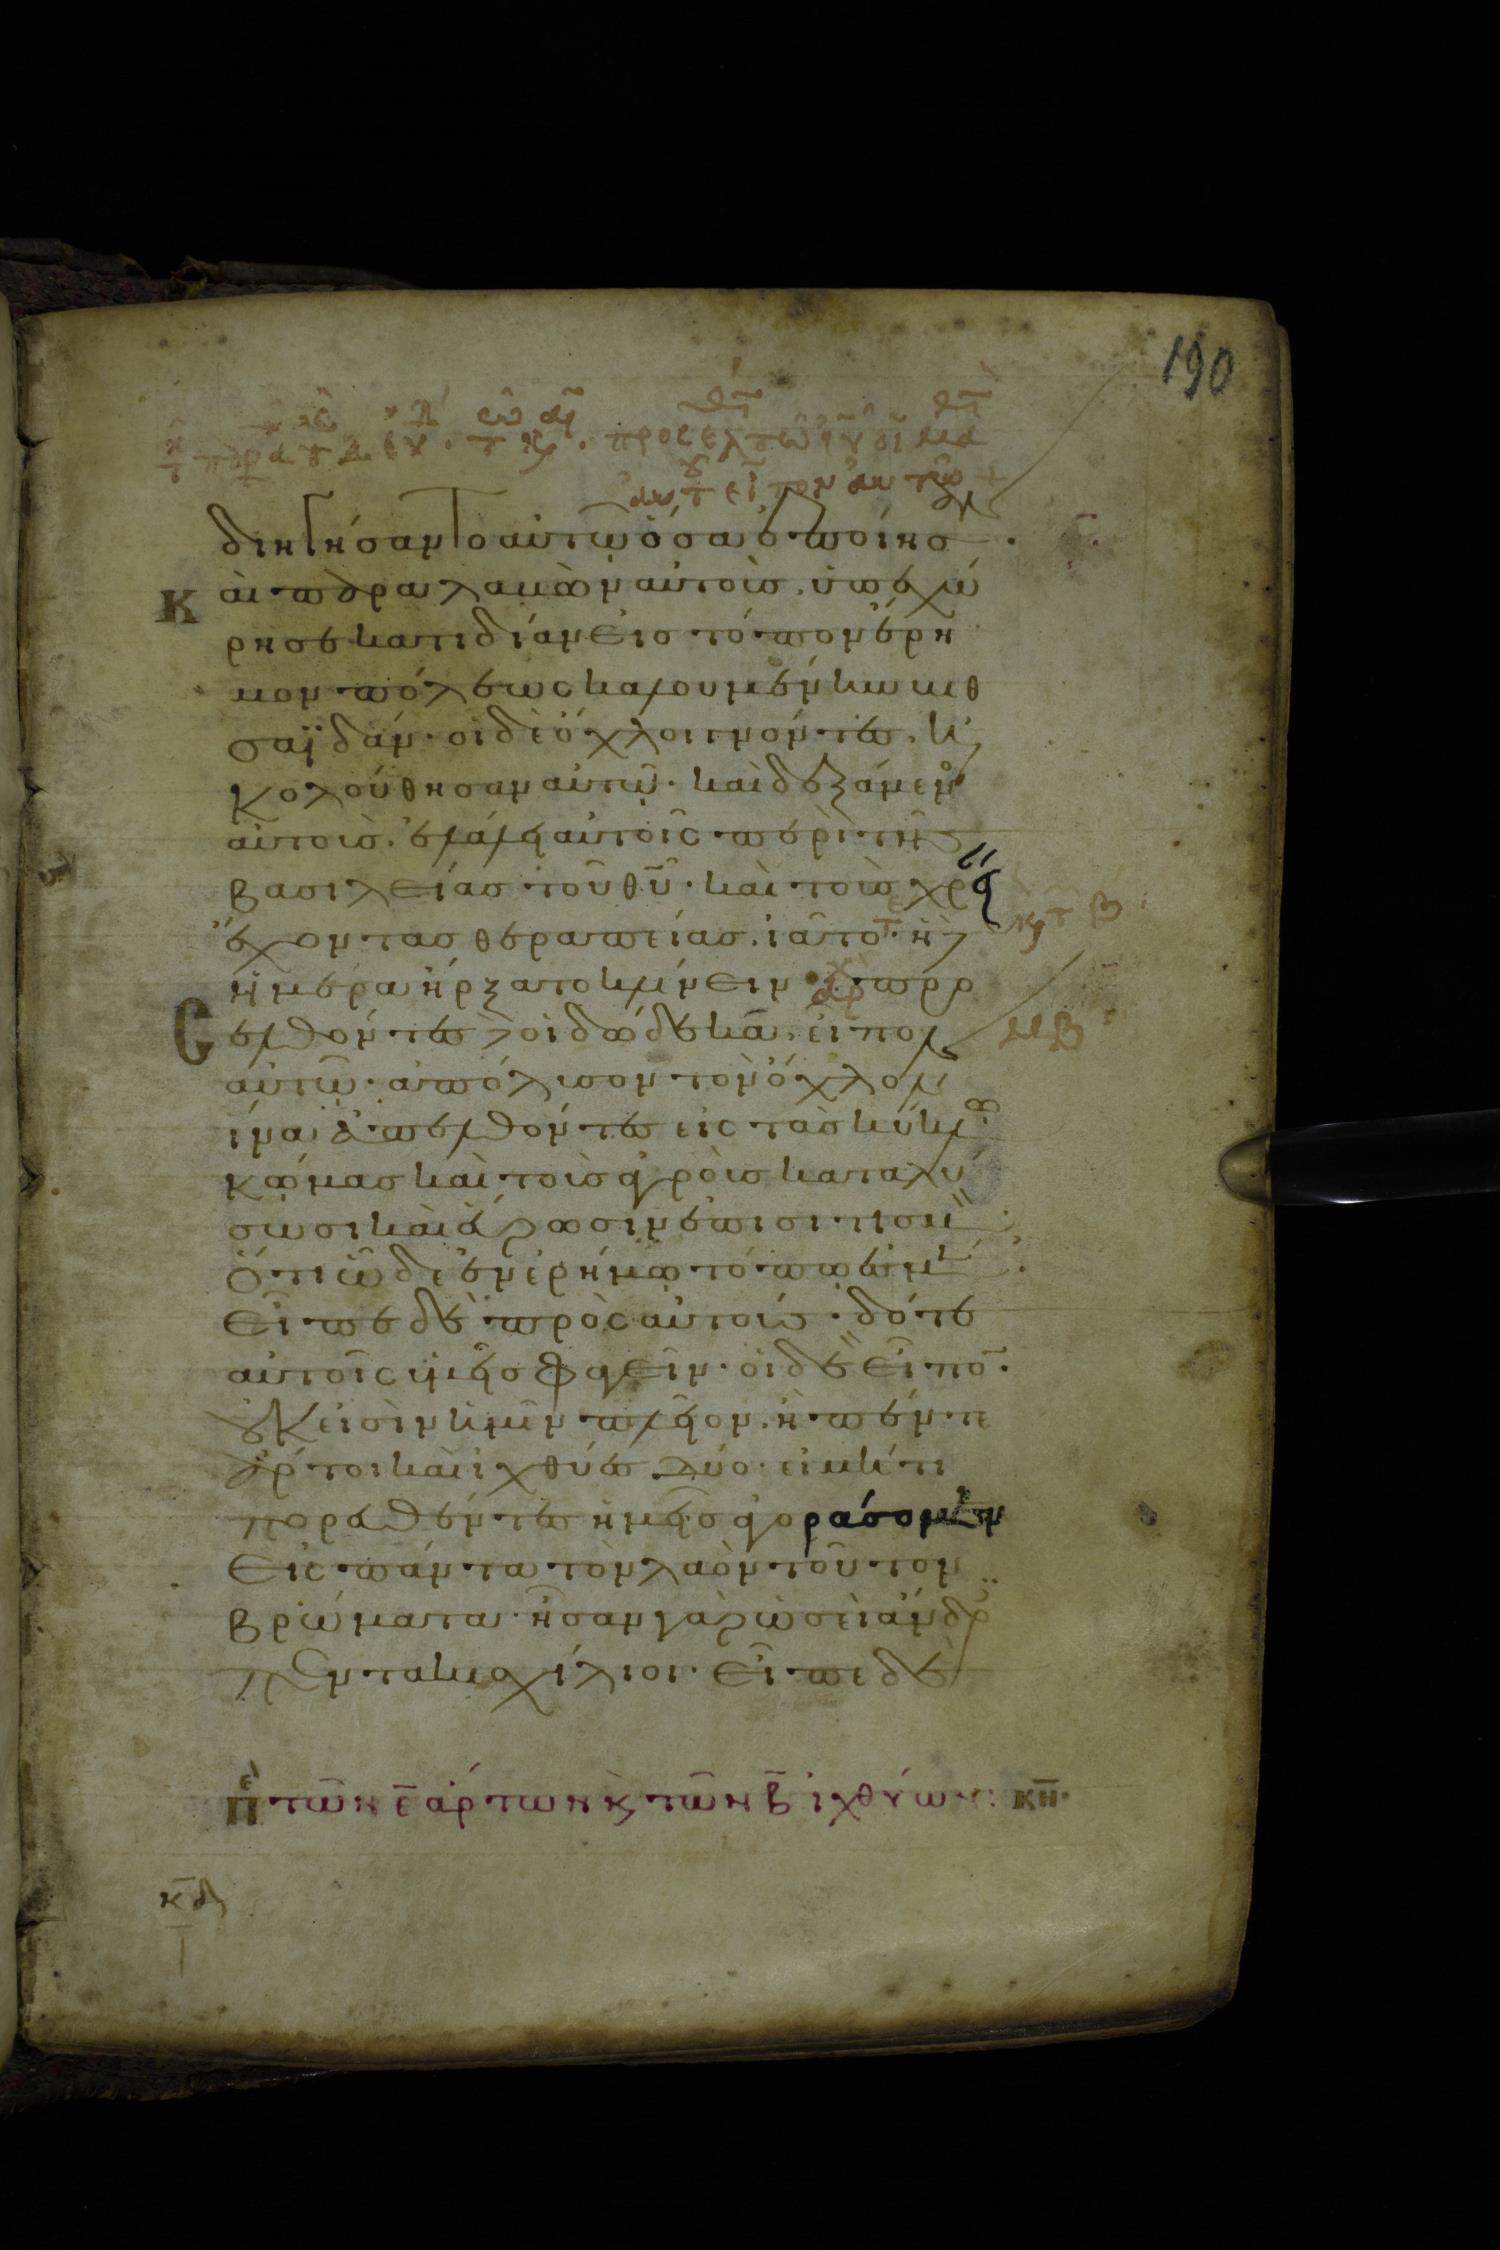 190
διηγήσαντο αὐτῶ ὅσα ἐποίησ
Κ αὶ παραλαβὼν αὐτοὺσ. ὑπεχώ
ρησε κατιδίαν εἰσ τόπον ἔρη
μον πόλεως καλουμένην βηθ
σαϊδάν. οἱ δὲ ὄχλοι γνόντεσ. ἠ
κολούθησαν αὐτῶ. καὶ δεξάμενος
αὐτοὺσ. ἐλάλει αὐτοῖς περὶ τῆς
βασιλείασ τοῦ θῦ. καὶ τοὺσ χρεί
ἔχοντασ θεραπείασ. ἰᾶτο. ἡ δὲ
ἡμέρα ἤρξατο κλίνειν. προσ
Ε ελθόντεσ δὲ οἱ δώδεκα. εἶπον
αὐτῶ. ἀπόλυσον τὸν ὄχλον
ἵνα ἀπελθόντεσ εἰς τὰσ κύκλω
κώμασ καὶ τοὺσ ἀγροὺσ καταλύ
σωσι καὶ εὕρωσιν ἐπισιτισμ
ὅτι ὧδε ἐν ἐρήμω τόπω ἐσμέν.
Εἶπε δὲ πρὸς αὐτούσ. δότε
αὐτοῖς ὑμεῖσ φαγεῖν. οἱ δὲ εἶπον.
οὐκ εἰσὶν ἡμῖν πλεῖον. ἢ πέντε
ἄρτοι καὶ ἰχθύεσ δύο. εἰ μήτι
πορευθέντεσ ἡμεῖσ ἀγοράσομεν
εἰς πάντα τὸν λαὸν τοῦτον
βρώματα. ἦσαν γὰρ ὡσεὶ ἄνδρες
πεντακισχίλιοι. εἶπε δὲ
πε τῶν ε̄ ἄρτων κ τῶν β̄ ἰχθύων: κη.
κδ